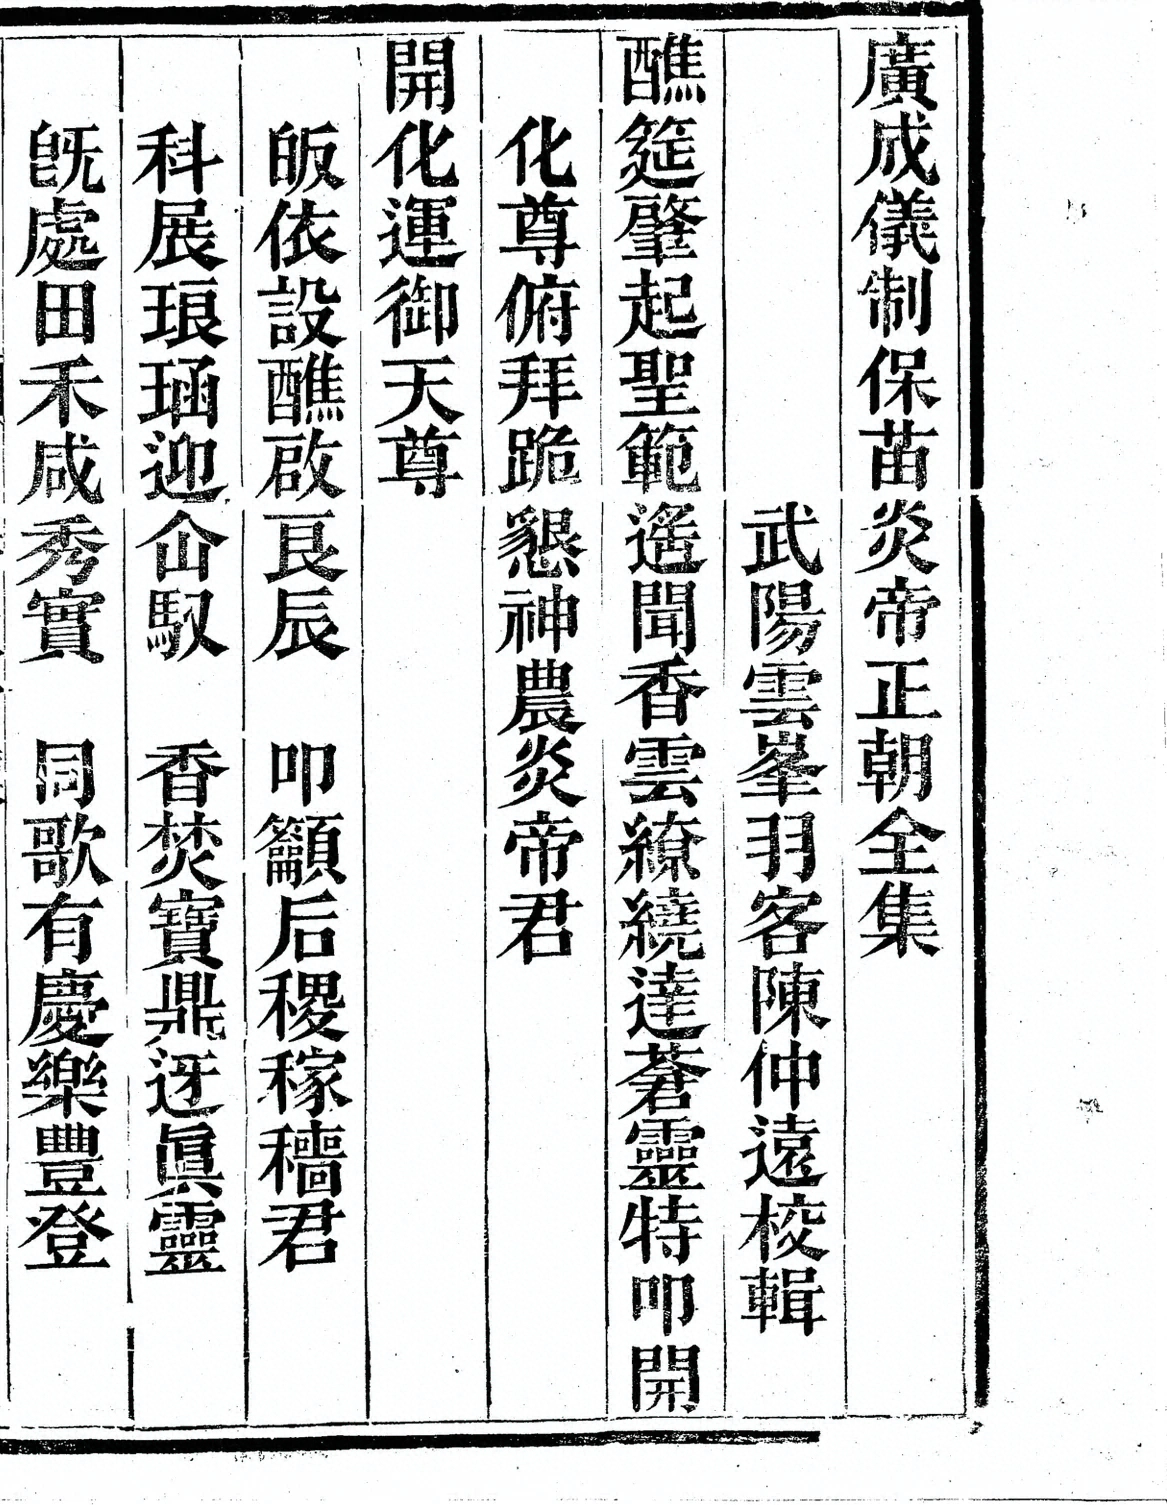 廣成儀制保苗炎帝正朝全集
武陽雲峯羽客陳仲遠校輯
醮筵肇起聖範遙聞香雲繚繞達蒼靈特叩開
化尊俯拜跪懇神農炎帝君
開化運御天尊
皈依設醮啟良辰　叩籲后稷稼穡君
科展琅函迎仚馭　香焚寶鼎迓眞靈
旣處田禾咸秀實　同歌有慶樂豐登